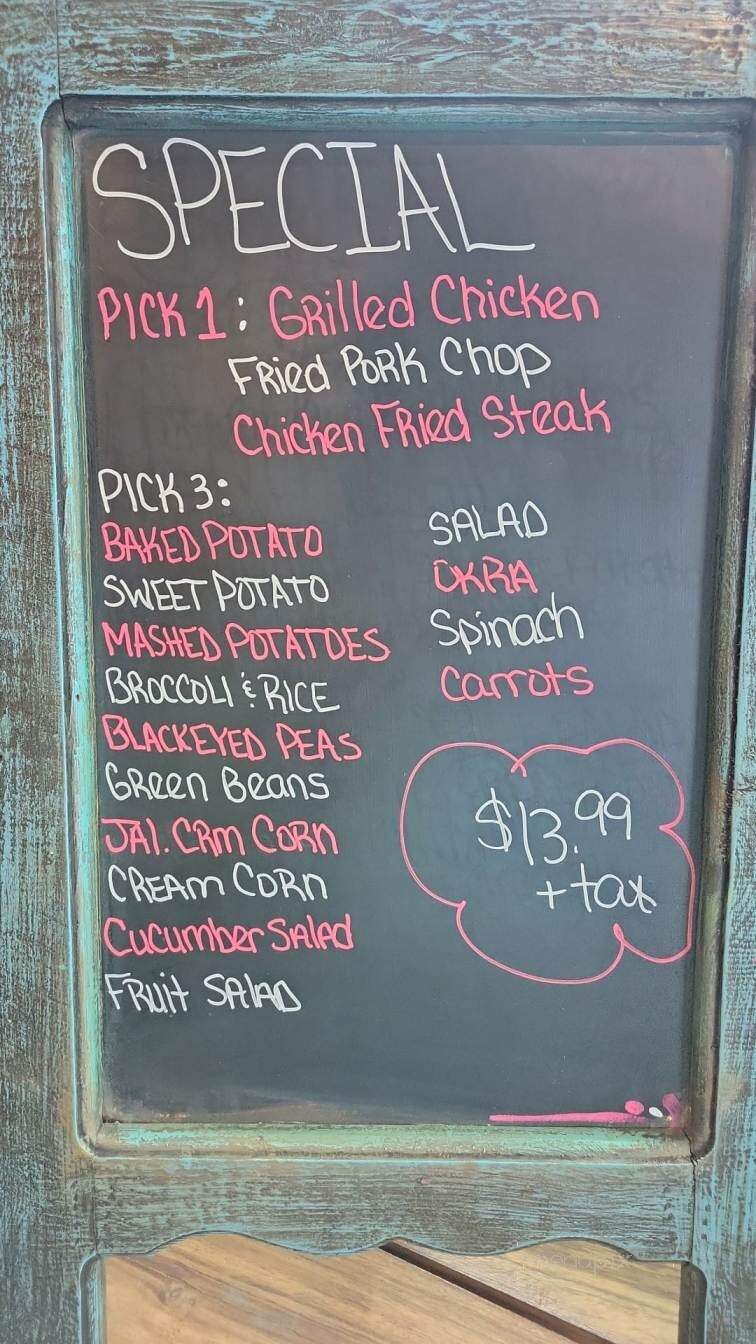 SPECIAL
PICK 1: GRilled Chicken
FRied PoRk Chop
Chicken FRied Steak
PICK 3:
BAKED POTATO
SWEET POTATO
MASHED POTATOES
BROCCOLI & RICE
BLACKEYED PEAS
GReen Beans
JAl. CRm CoRn
CREAm CoRn
Cucumber SAlAd
FRuit SAlAD
SALAD
OKRA
Spinach
Carrots
$13.99
+ tax